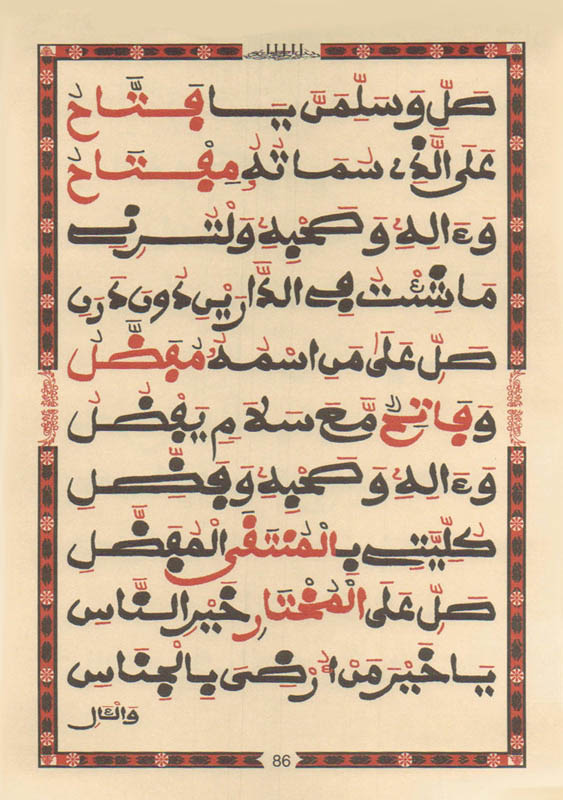 صَلِّ وَسَلِّمَنَّ يَا فَتَّاحُ
عَلَى الَّذِي سَمَاتُهُ مِفْتَاحُ
وَءَالِهِ وَصَحْبِهِ وَلْتُرِنِي
مَا شِئْتُ فِي الدَّارَيْنِ دُونَ دَرَنِ
صَلِّ عَلَى مَنِ اسْمُهُ مُفَضَّلُ
وَفَاتِحٌ مَّعَ سَلَامٍ يَفْضُلُ
وَءَالِهِ وَصَحْبِهِ وَفَضِّلِ
كُلِّيَّتِي بِالْمُنْتَقَى الْمُفَضَّلِ
صَلِّ عَلَى الْمُخْتَارِ خَيْرِ النَّاسِ
يَا خَيْرَ مَنْ أَرْضَى بِالْجِنَاسِ
وَالْآلِ
86